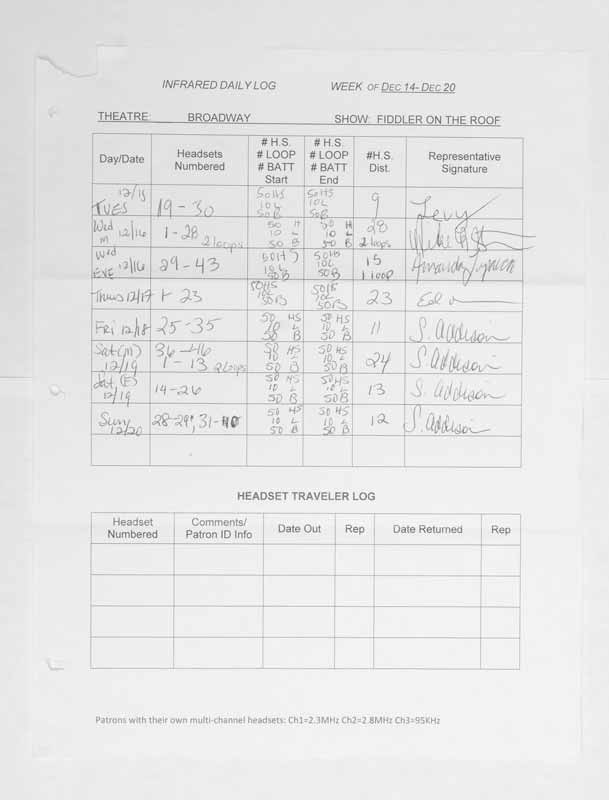 INFRARED DAILY LOG WEEK OF DEC 14- DEC 20
THEATRE: BROADWAY SHOW: FIDDLER ON THE ROOF
Day/Date Headsets Numbered # H.S. # LOOP # BATT Start # H.S. # LOOP # BATT End #H.S. Dist. Representative Signature
12/15 TUES 19-30 50HS 10L 50B 50HS 10L 50B 9 Levy
Wed M 12/16 1-28 2 loops 50 H 10 L 50 B 50 H 10 L 50 B 28 2 loops Mike
Wed EVE 12/16 29-43 50HS 10L 50B 50HS 10L 50B 15 1 loop Amanda
Thurs 12/17 1-23 50HS 10L 50B 50HS 10L 50B 23 Ed
Fri 12/18 25-35 50 HS 10 L 50 B 50 HS 10 L 50 B 11 S. Addison
Sat (M) 12/19 36-46 1-13 2 loops 50 HS 10 L 50 B 50 HS 10 L 50 B 24 S. Addison
Sat (E) 12/19 14-26 50 HS 10 L 50 B 50 HS 10 L 50 B 13 S. Addison
Sun 12/20 28-29, 31-40 50 HS 10 L 50 B 50 HS 10 L 50 B 12 S. Addison
HEADSET TRAVELER LOG
Headset Numbered Comments/ Patron ID Info Date Out Rep Date Returned Rep
Patrons with their own multi-channel headsets: Ch1=2.3MHz Ch2=2.8MHz Ch3=95KHz